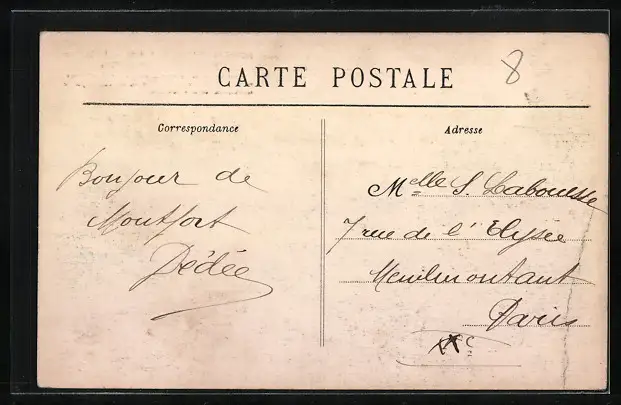 8
CARTE POSTALE
Correspondance
Bonjour de
Montfort
Dédée
Adresse
Melle S. Labouesse
7 rue de l'Elysée
Menilmontant
Paris
XXe